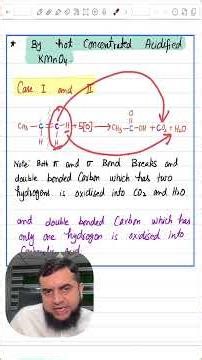 * By hot Concentrated Acidified
KMnO4.
Case I and II
CH3-C=C-H +5[O] → CH3-C-OH + CO2 + H2O
H H O
Note: Both π and σ Bond Breaks and
double bonded Carbon which has two
hydrogens is oxidised into CO2 and H2O
and double bonded Carbon which has
only one hydrogen is oxidised into